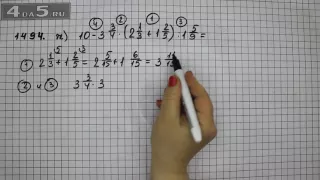 4DA5.RU
④ ② ① ③
1494. ж) 10 - 3 3/4 · (2 1/3 + 1 2/5) : 1 5/9 =
① 2 1/3 + 1 2/5 = 2 5/15 + 1 6/15 = 3 11/15
② 3 3/4 · 3